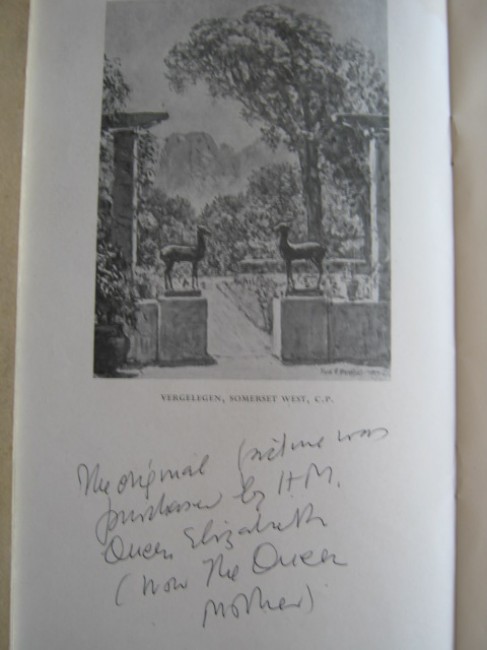 VERGELEGEN, SOMERSET WEST, C.P.
The original picture was
purchased by H.M.
Queen Elizabeth
(now The Queen
Mother)